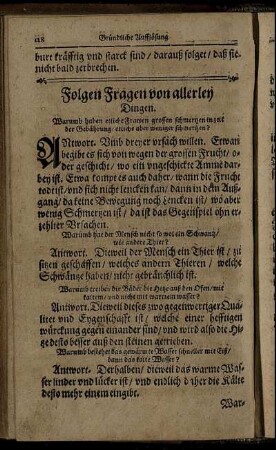 118 Gründliche Aufflösung
burt kräfftig vnd starck sind / darauß folget / daß sie
nicht bald zerbrechen.
Folgen Fragen von allerley
Dingen.
Warumb haben etliche Frawen grossen schmertzen in zeit
der Gebährung / etliche aber weniger schmertzen?
ANtwort. Vmb dreyer vrsach willen. Etwan
begibt es sich von wegen der grossen Frucht / o-
der geschicht / wo ein vngeschickte Amme dar-
bey ist. Etwa kompt es auch daher / wann die Frucht
todt ist / vnd sich nicht lencken kan / dann in dem Auß-
gang / da keine Bewegung noch Lencken ist / wo aber
wenig Schmertzen ist / da ist das Gegenspiel obn er-
zehlter Vrsachen.
Warumb hat der Mensch nicht so wol ein Schwantz /
wie andere Thier?
Antwort. Dieweil der Mensch ein Thier ist / zu
sitzen geschaffen / welches andern Thieren / welche
Schwäntze haben / nicht gebräuchlich ist.
Warumb treiben die Bäder die Hitze auß den Ofen / mit
kaltem / vnd nicht mit warmem wasser?
Antwort. Dieweil dieses zwo gegenwertige Qua-
litet vnd Eygenschafft ist / welche einer hefftigen
würckung gegen einander sind / vnd wird also die Hi-
tze desto besser auß den steinen getrieben.
Warumb bestehet das gewärmte Wasser schneller mit Eiß /
dann das kalte Wasser?
Antwort. Derhalben / dieweil das warme Was-
ser linder vnd lücker ist / vnd endlich daher die Kälte
desto mehr einem eingibt.
War-